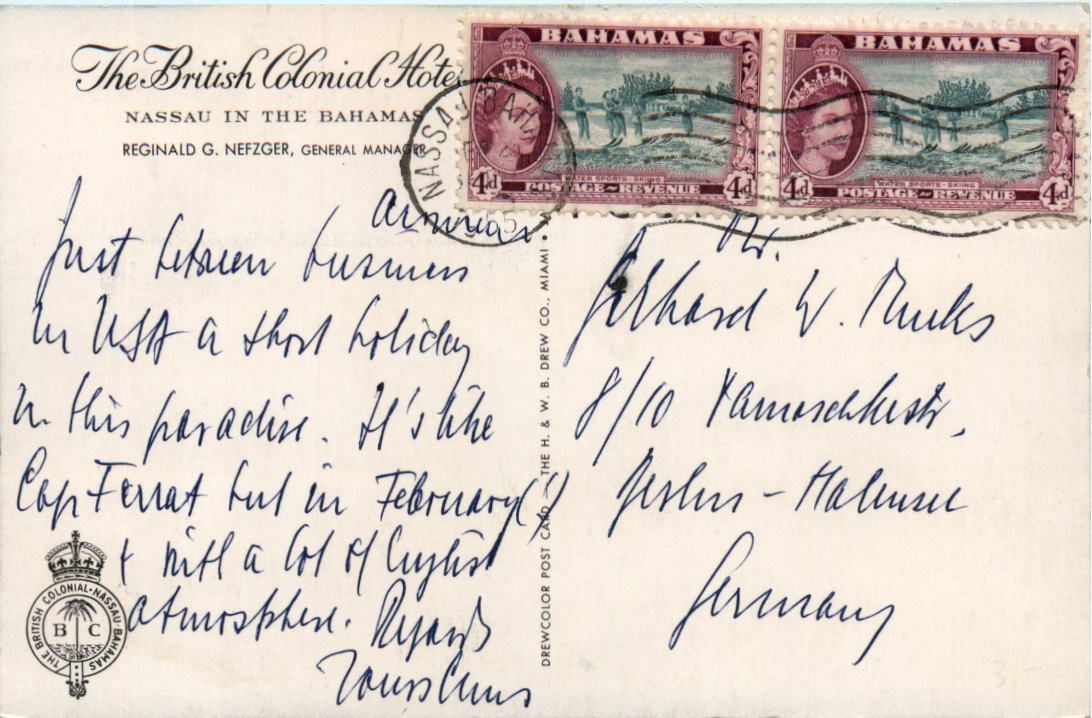 The British Colonial Hotel
NASSAU IN THE BAHAMAS
REGINALD G. NEFZGER, GENERAL MANAGER
BAHAMAS
4d
WATER SPORTS - SKIING
POSTAGE ~ REVENUE
4d
BAHAMAS
4d
WATER SPORTS - SKIING
POSTAGE ~ REVENUE
4d
NASSAU BAHAMAS
Just between business
in USA a short holiday
in this paradise. It's like
Cap Ferrat but in February (!)
+ with a lot of English
atmosphere. Regards
Yours
THE BRITISH COLONIAL · NASSAU · BAHAMAS
B C
DREWCOLOR POST CARD — THE H. & W. B. DREW CO., MIAMI
Dr.
Gerhard W.
8/10
Berlin - Halensee
Germany